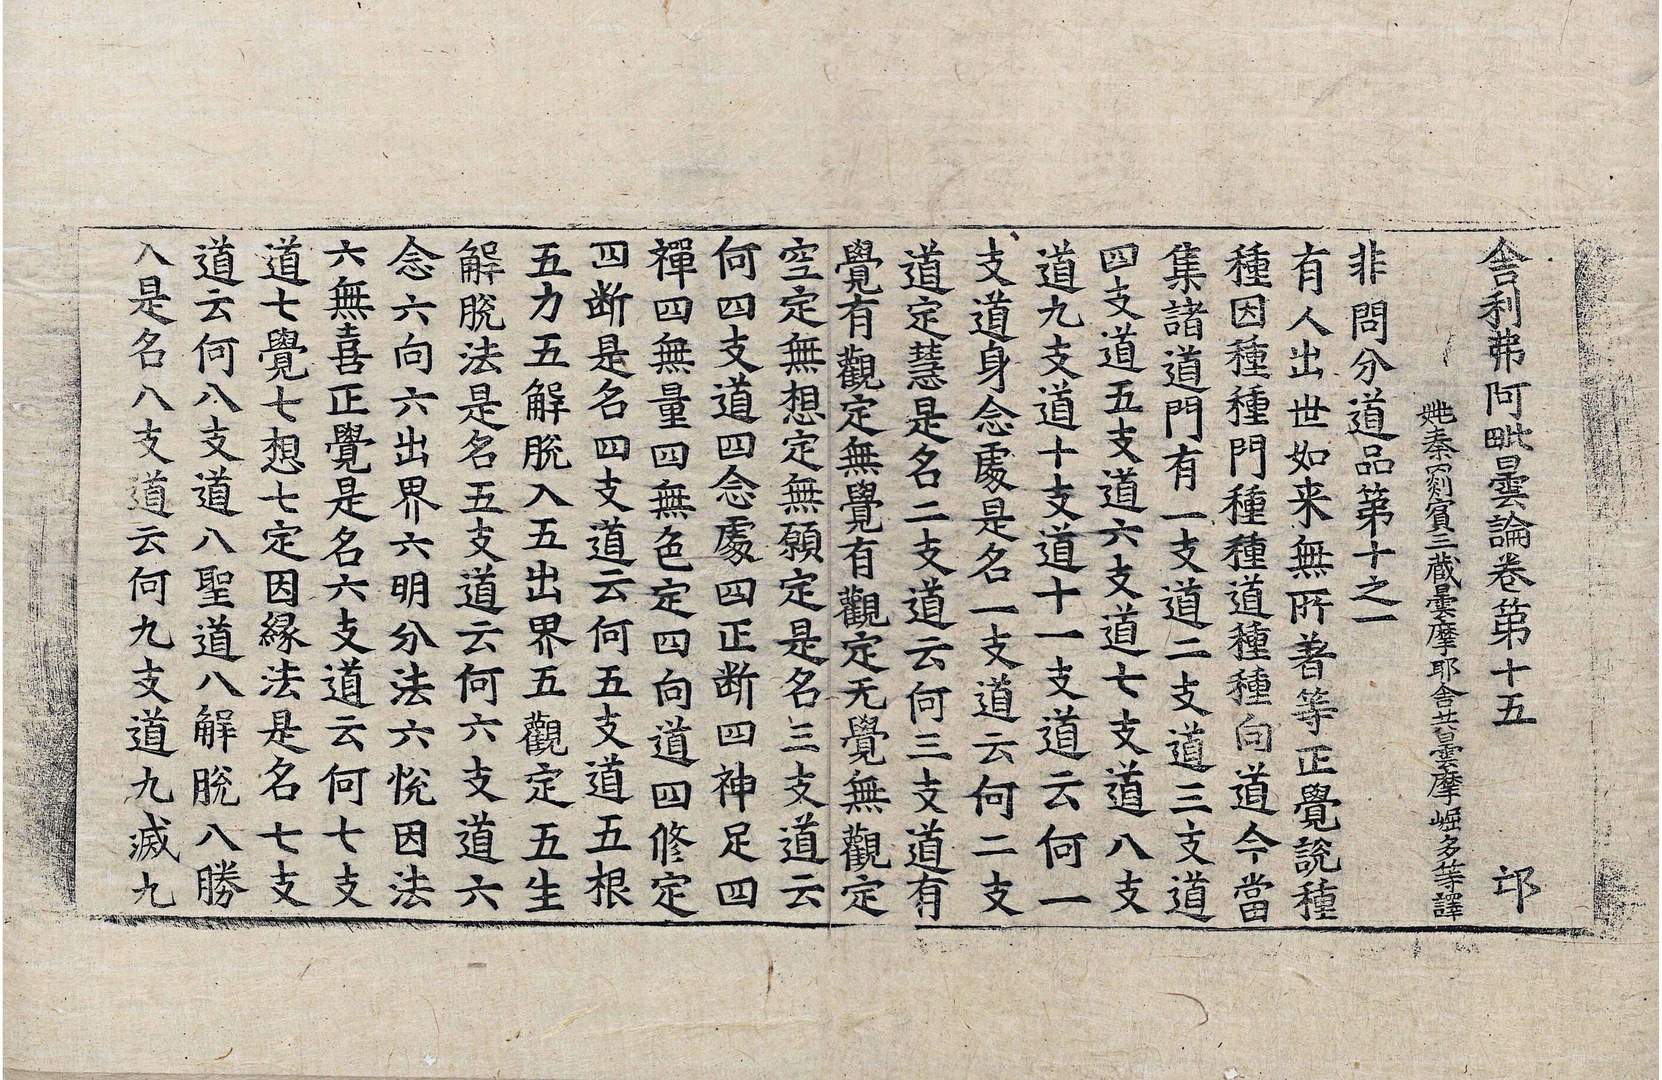 舎利弗阿毗曇論卷第十五 邙
姚秦罽賓三藏曇摩耶舎共曇摩崛多等譯
非問分道品第十之一
有人出世如来無所著等正覺說種
種因種種門種種道種種向道今當
集諸道門有一支道二支道三支道
四支道五支道六支道七支道八支
道九支道十支道十一支道云何一
支道身念處是名一支道云何二支
道定慧是名二支道云何三支道有
覺有觀定無覺有觀定无覺無觀定
空定無想定無願定是名三支道云
何四支道四念處四正断四神足四
禪四無量四無色定四向道四修定
四断是名四支道云何五支道五根
五力五解脫入五出界五觀定五生
解脫法是名五支道云何六支道六
念六向六出界六明分法六悅因法
六無喜正覺是名六支道云何七支
道七覺七想七定因縁法是名七支
道云何八支道八聖道八解脫八勝
八是名八支道云何九支道九滅九